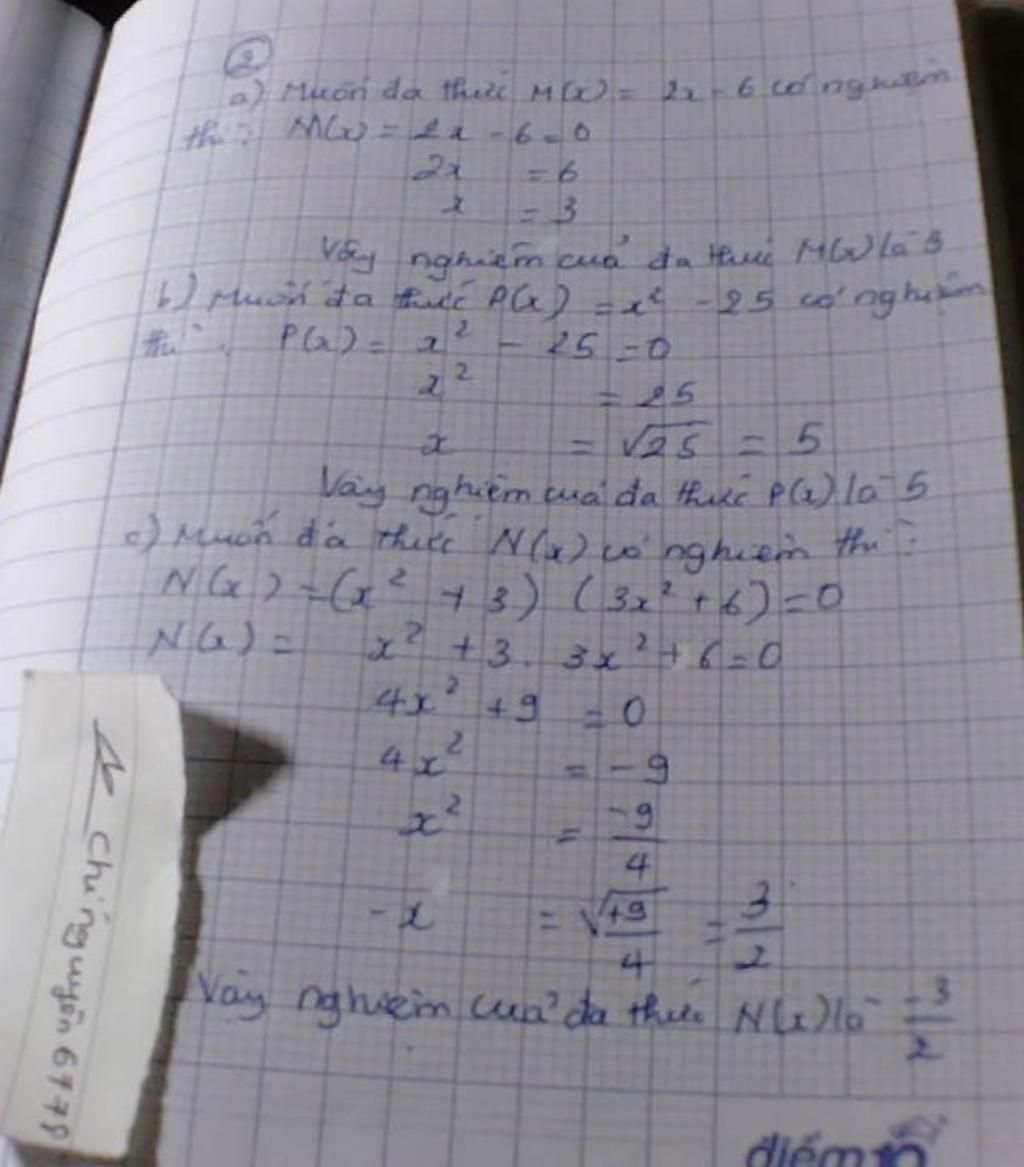 2
a) Muốn đa thức M(x) = 2x - 6 có nghiệm
thì : M(x) = 2x - 6 = 0
2x = 6
x = 3
Vậy nghiệm của đa thức M(x) là 3
b) Muốn đa thức P(x) = x² - 25 có nghiệm
thì : P(x) = x² - 25 = 0
x² = 25
x = √25 = 5
Vậy nghiệm của đa thức P(x) là 5
c) Muốn đa thức N(x) có nghiệm thì :
N(x) = (x² + 3) (3x² + 6) = 0
N(x) = x² + 3 . 3x² + 6 = 0
4x² + 9 = 0
4x² = -9
x² = -9/4
-x = √+9/4 = 3/2
Vậy nghiệm của đa thức N(x) là -3/2
Chinguyễn 6778
điểm 10